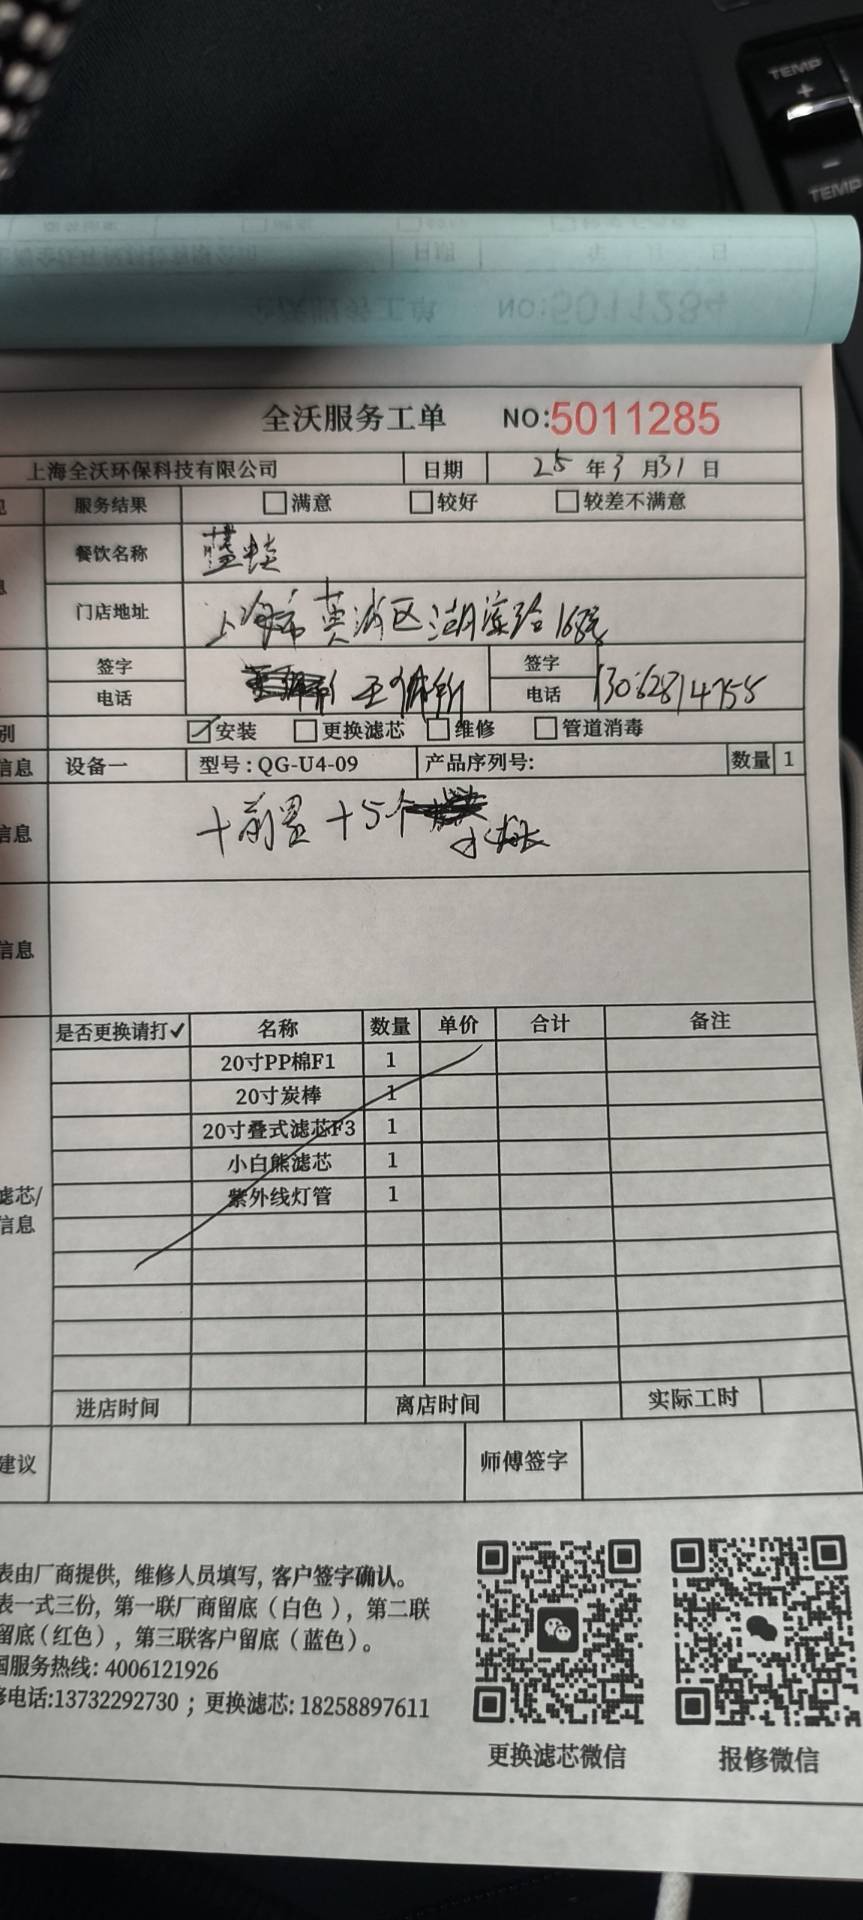 TEMP
+
−
TEMP
全沃服务工单 NO:5011285
上海全沃环保科技有限公司 日期 25 年 3 月 31 日
服务结果 满意 较好 较差不满意
餐饮名称 蓝蛙
门店地址 上海市黄浦区湖滨路168号
签字 签字
电话 王 电话 13062814755
别 安装 更换滤芯 维修 管道消毒
信息 设备一 型号：QG-U4-09 产品序列号: 数量 1
信息 +前置 +5个 水
信息
是否更换请打✓ 名称 数量 单价 合计 备注
20寸PP棉F1 1
20寸炭棒 1
20寸叠式滤芯F3 1
小白熊滤芯 1
紫外线灯管 1
滤芯/
信息
进店时间 离店时间 实际工时
建议 师傅签字
表由厂商提供, 维修人员填写, 客户签字确认。
表一式三份, 第一联厂商留底（白色）, 第二联
留底（红色）, 第三联客户留底（蓝色）。
国服务热线: 4006121926
修电话:13732292730 ；更换滤芯: 18258897611
更换滤芯微信 报修微信